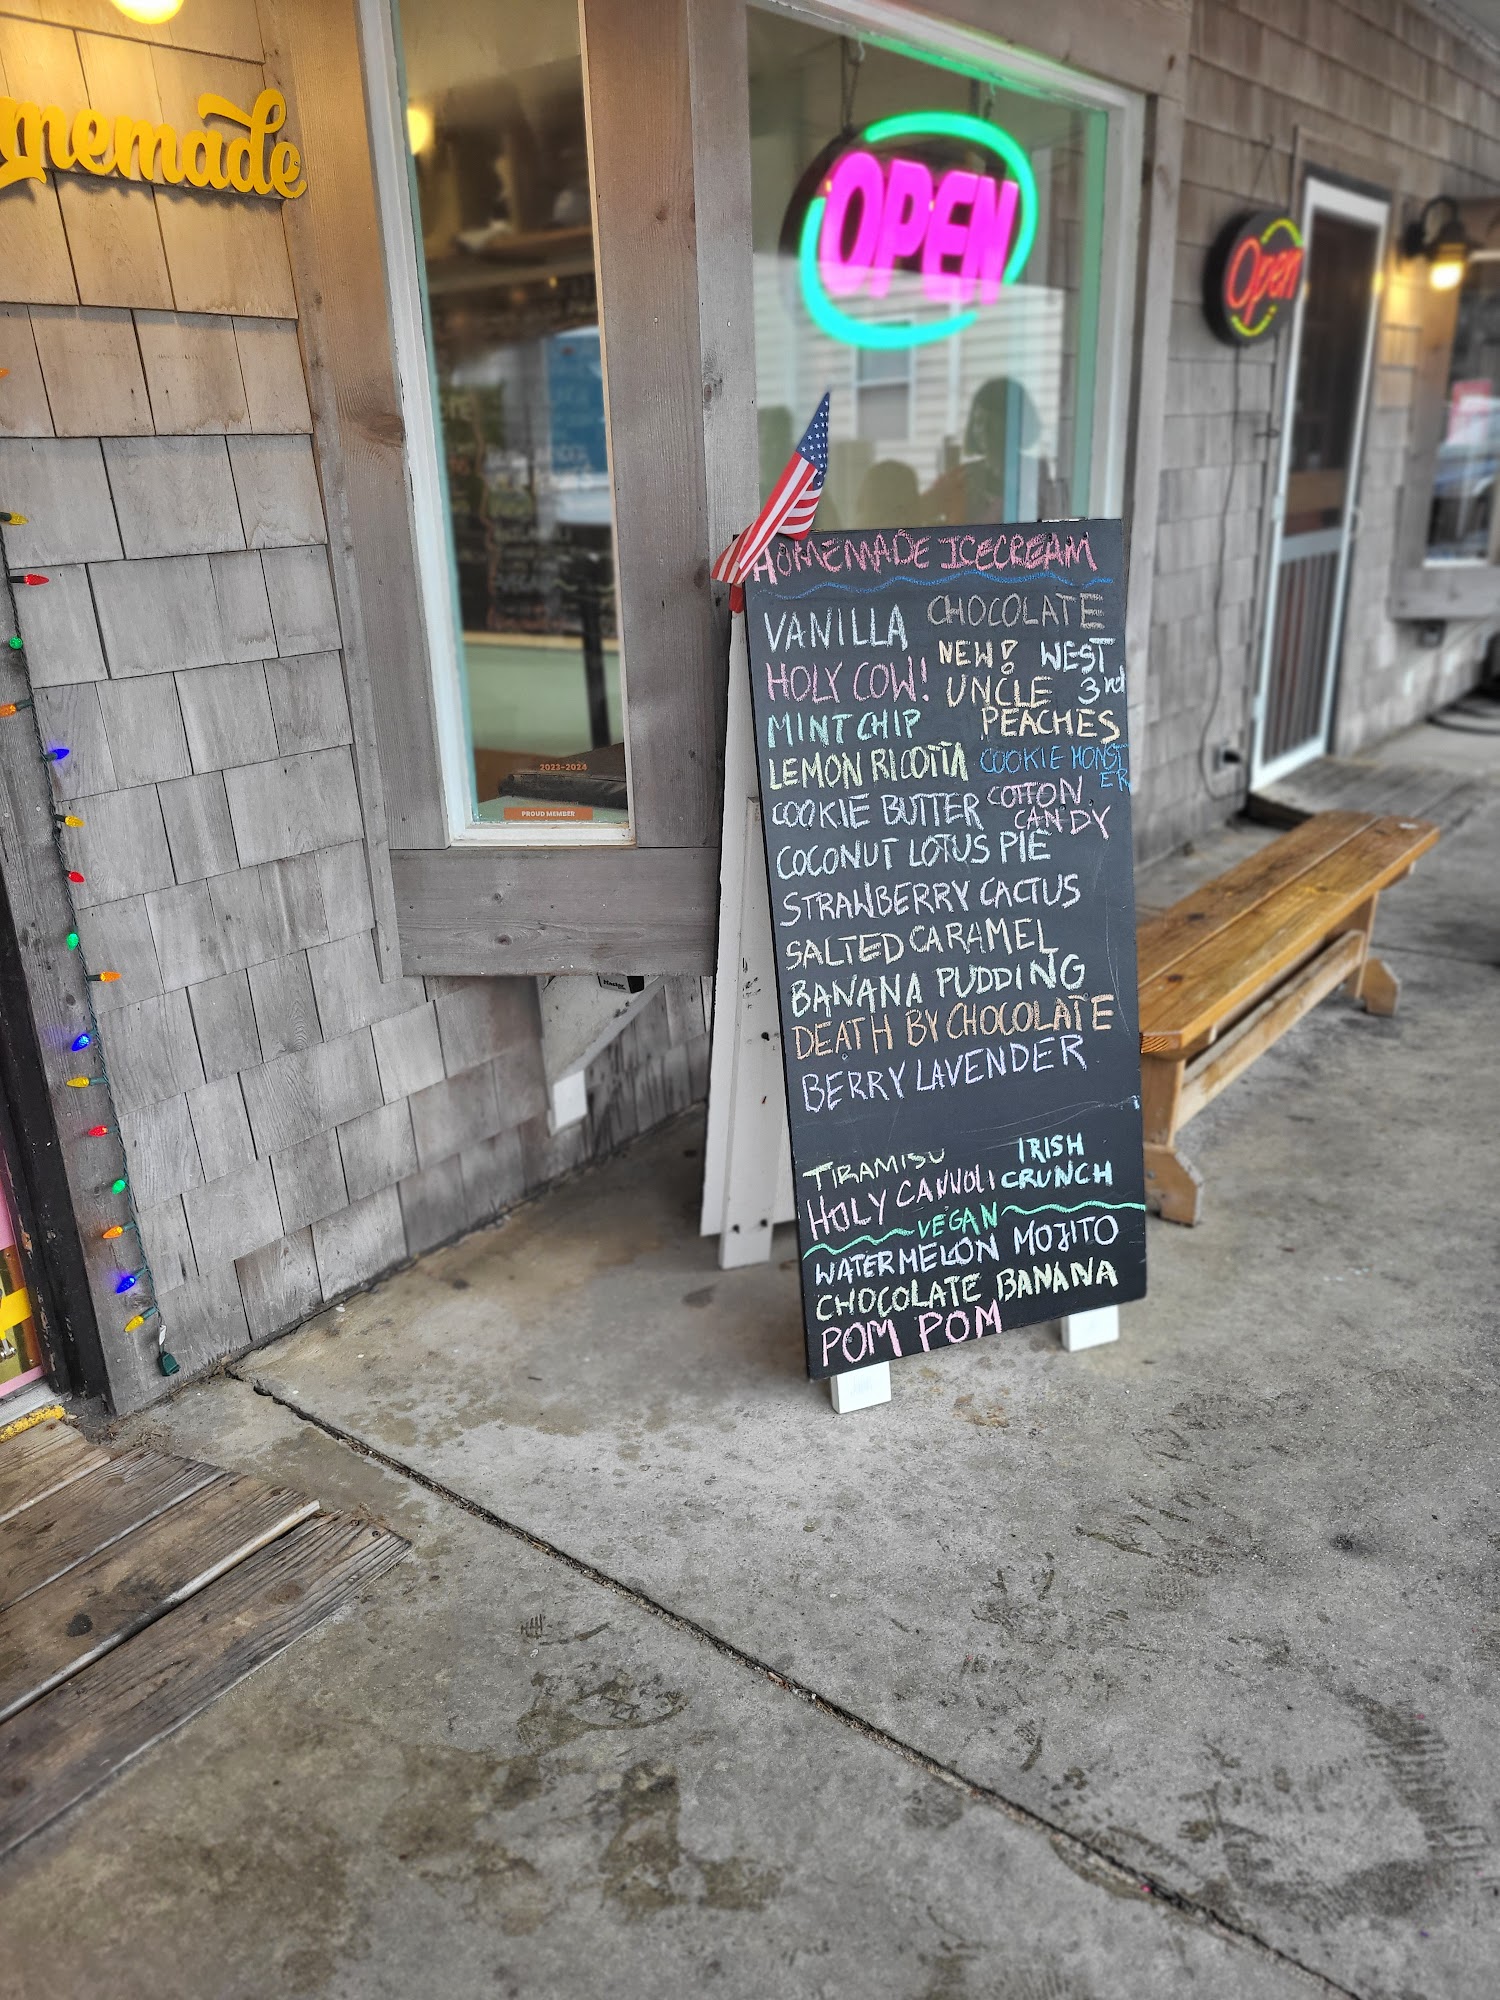 memade
OPEN
Open
HOMEMADE ICECREAM
VANILLA CHOCOLATE
HOLY COW! NEW! WEST
UNCLE 3rd
MINT CHIP PEACHES
LEMON RICOTTA COOKIE MONST
ER
COOKIE BUTTER COTTON
CANDY
COCONUT LOTUS PIE
STRAWBERRY CACTUS
SALTED CARAMEL
BANANA PUDDING
DEATH BY CHOCOLATE
BERRY LAVENDER
TIRAMISU IRISH
HOLY CANNOLI CRUNCH
VEGAN
WATERMELON MOJITO
CHOCOLATE BANANA
POM POM
2023-2024
PROUD MEMBER